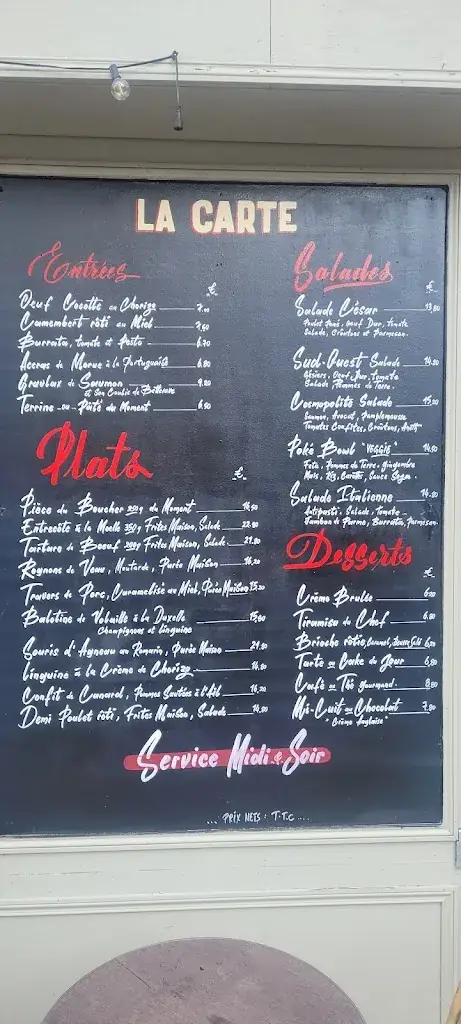 LA CARTE
Entrées
€
Oeuf Cocotte au Chorizo
Camembert rôti au Miel 7,50
Burratta, tomate et Pesto 6.70
Accras de Morue à la Portugaise 6.80
Gravlax de Saumon 9.20
et Son Coulis de Betterave
Terrine ou Pâté du Moment 6.50
Plats
€
Pièce du Boucher du Moment
Entrecôte à la Moelle 350g Frites Maison, Salade 22.80
Tartare de Boeuf Frites Maison, Salade 21.80
Rognons de Veau, Moutarde, Purée Maison
Travers de Porc, Caramelisé au Miel, Purée Maison
Balotine de Volaille à la Duxelle
champignons et linguine
Souris d'Agneau au Romarin, Purée Maison
Linguine à la Crème de Chorizo
Confit de Canard, Pommes Sautées à l'Ail
Demi Poulet rôti, Frites Maison, Salade
Service Midi & Soir
Salades
€
Salade César 13.80
Poulet Pané, Oeuf Dur, Tomate
Salade, Croûtons et Parmesan
Sud-Ouest Salade 14.50
Gésiers, Oeuf Dur, Tomate
Salade Pommes de Terre
Cosmopolite Salade
Saumon, Avocat, Pamplemousse
Tomates Confites, Croûtons,
Poké Bowl "VEGGIE" 14.50
Feta, Pommes de Terre, Gingembre
Maïs, Riz, Carottes, Sauce Soja
Salade Italienne
Antipasti, Salade, Tomate
Jambon de Parme, Burratta, Parmesan
Desserts
€
Crème Brulée 6.20
Tiramisu du Chef 6.80
Brioche rôtie, Caramel, Beurre Salé
Tarte ou Cake du Jour 6,80
Café ou Thé gourmand 8.80
Mi-Cuit au Chocolat 7.80
"Crème Anglaise"
... PRIX NETS : T.T.C ...